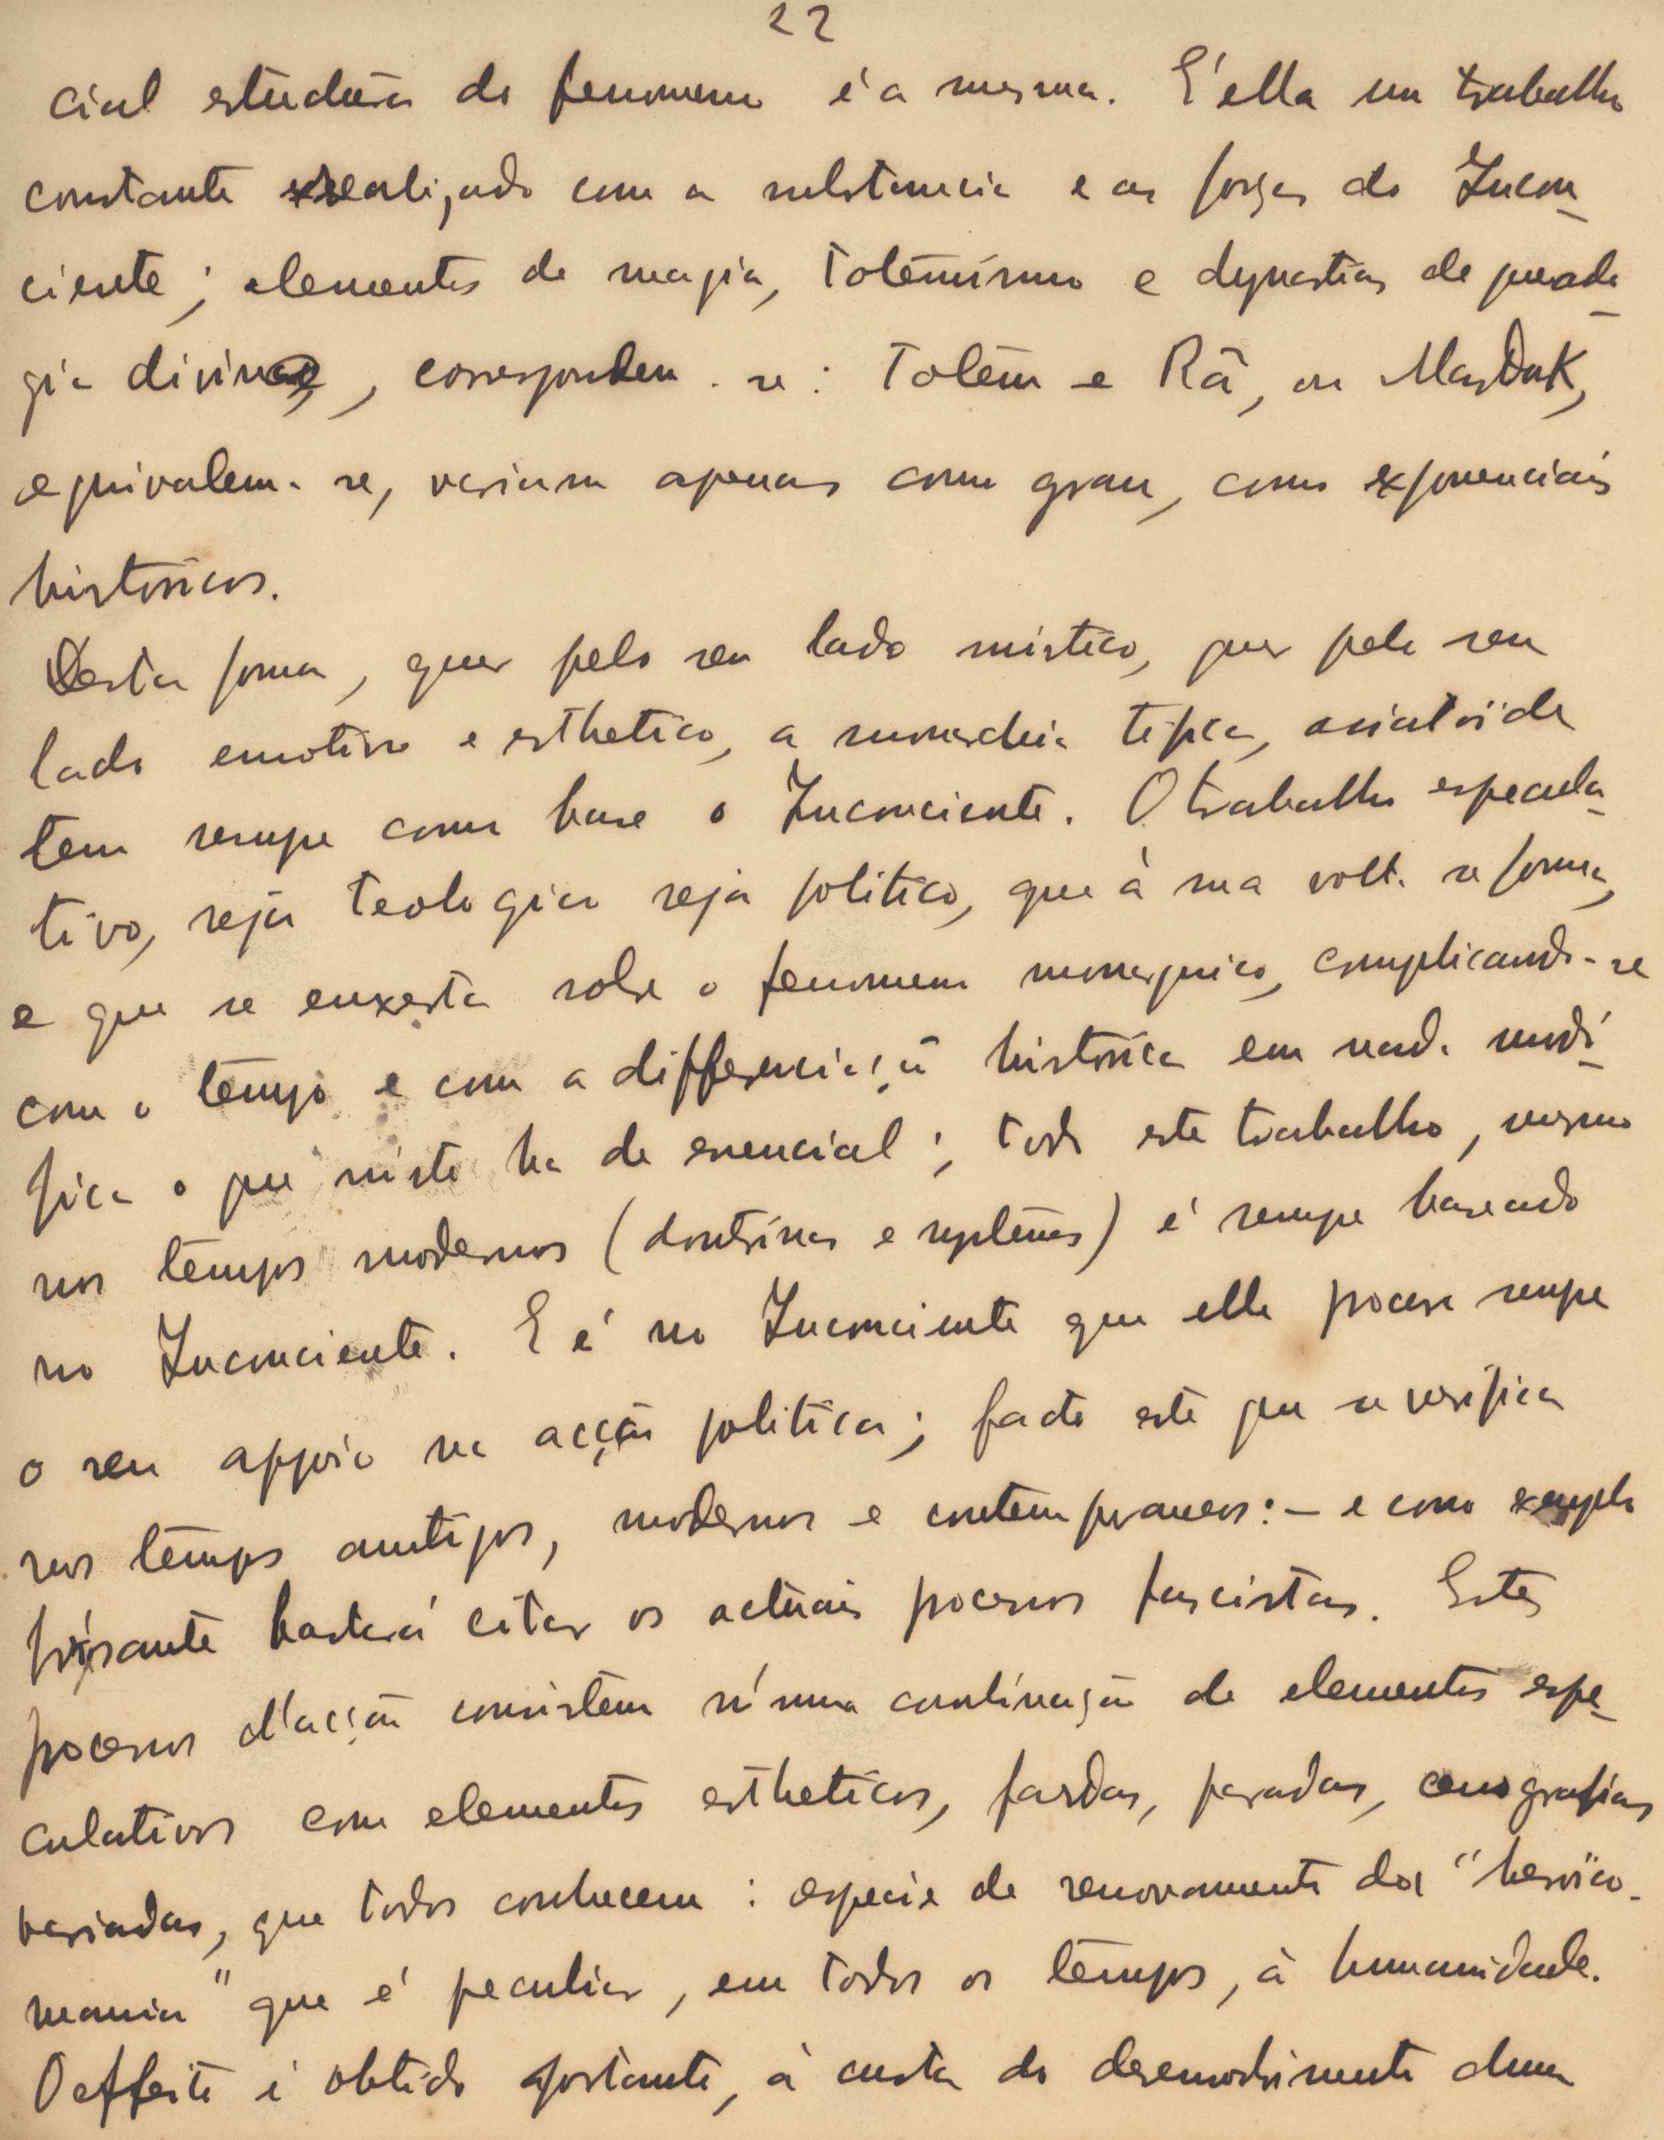 22
cial estructura do fenomeno é a mesma. E' ella um trabalho
constante realizado com a substancia e as forças do Incon-
ciente; elementos de magia, totemismo e dynastias de
gia divina, correspondem-se: Totem e Rā, ou MarDuK,
equivalem-se, variam apenas como grau, como exponenciais
historicos.
Desta forma, quer pelo seu lado mistico, quer pelo seu
lado emotivo e esthetico, a monarchia tipica, asiatóide
tem sempre como base o Inconciente. O trabalho especula-
tivo, seja teologico seja politico, que à sua volta se forma,
e que se enxerta sobre o fenomeno monarquico, complicando-se
com o tempo e com a differenciação histórica em nada modi-
fica o que nisto ha de esencial; todo este trabalho, mesmo
nos tempos modernos (doutrinas e systemas) é sempre baseado
no Inconciente. E é no Inconciente que elle procura sempre
o seu appoio na acção politica; facto este que se verifica
nos tempos antigos, modernos e contemporaneos: - e como exemplo
frisante bastará citar os actuais processos fascistas. Estes
processos d'acção consistem n'uma combinação de elementos espe-
culativos com elementos estheticos, fardas, paradas, cenografias
variadas, que todos conhecem: especie de renovamento da "heroïco-
mania" que é peculiar, em todos os tempos, à humanidade.
O effeito é obtido portanto, à custa do desenvolvimento duma